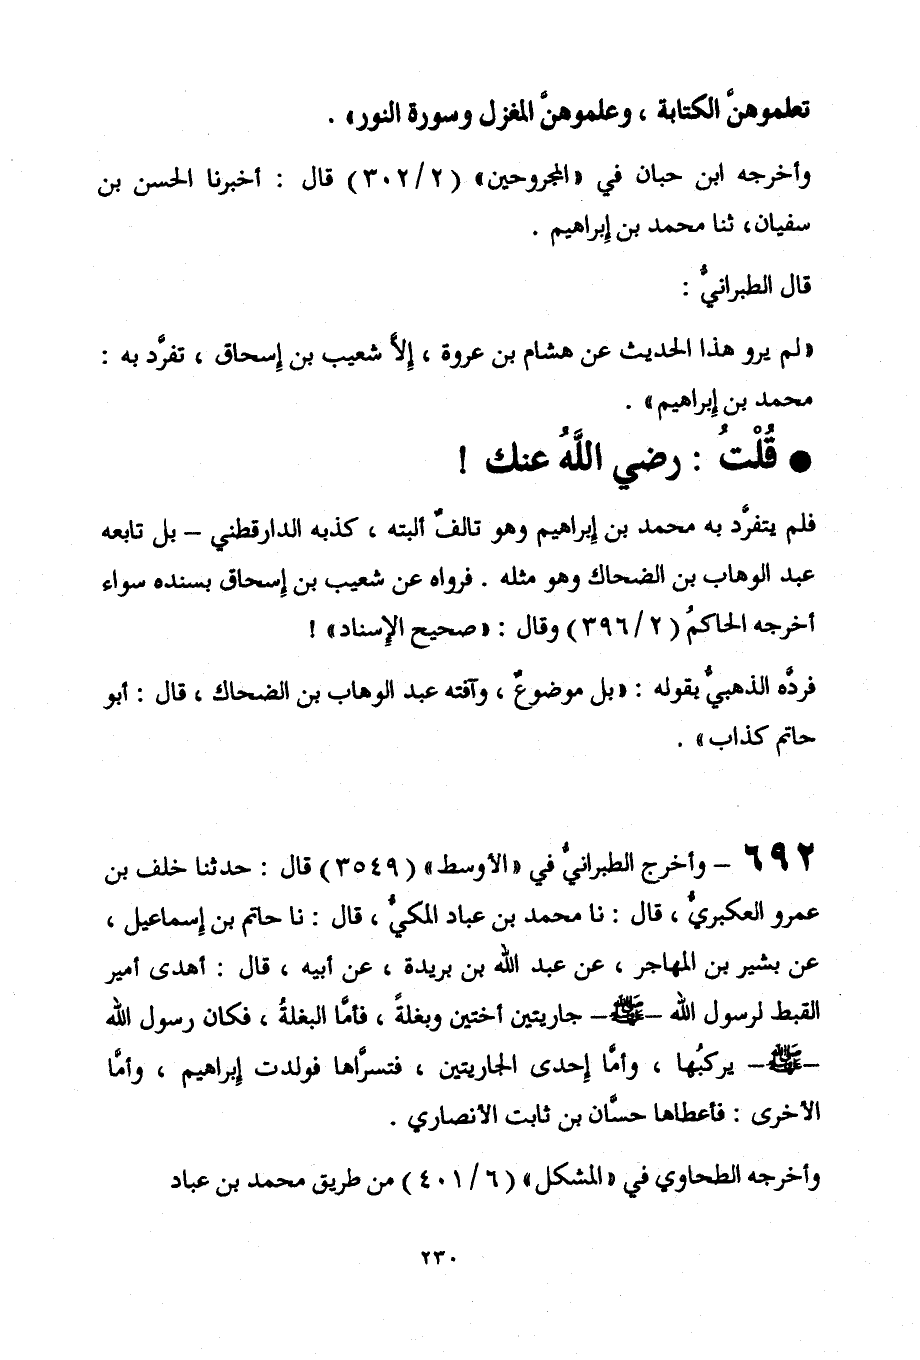 تعلموهنَّ الكتابة ، وعلموهنَّ المغزل وسورة النور» .
وأخرجه ابن حبان في «المجروحين» (٣٠٢/٢) قال : أخبرنا الحسن بن
سفيان، ثنا محمد بن إبراهيم .
قال الطبرانيُّ :
«لم يرو هذا الحديث عن هشام بن عروة ، إلاَّ شعيب بن إسحاق ، تفرَّد به :
محمد بن إبراهيم» .
● قُلْتُ : رضي اللَّهُ عنك !
فلم يتفرَّد به محمد بن إبراهيم وهو تالفٌ ألبته ، كذبه الدارقطني – بل تابعه
عبد الوهاب بن الضحاك وهو مثله . فرواه عن شعيب بن إسحاق بسنده سواء
أخرجه الحاكمُ (٣٩٦/٢) وقال : «صحيح الإسناد» !
فردَّه الذهبيُّ بقوله : «بل موضوعٌ ، وآفته عبد الوهاب بن الضحاك ، قال : أبو
حاتم كذاب» .
٦٩٢ – وأخرج الطبرانيُّ في «الأوسط» (٣٥٤٩) قال : حدثنا خلف بن
عمرو العكبريُّ ، قال : نا محمد بن عباد المكيُّ ، قال : نا حاتم بن إسماعيل ،
عن بشير بن المهاجر ، عن عبد الله بن بريدة ، عن أبيه ، قال : أهدى أمير
القبط لرسول الله –ﷺ– جاريتين أختين وبغلةً ، فأمَّا البغلةُ ، فكان رسول الله
–ﷺ– يركبُها ، وأمَّا إحدى الجاريتين ، فتسرَّاها فولدت إبراهيم ، وأمَّا
الأخرى : فأعطاها حسَّان بن ثابت الأنصاري .
وأخرجه الطحاوي في «المشكل» (٤٠١/٦) من طريق محمد بن عباد
٢٣٠